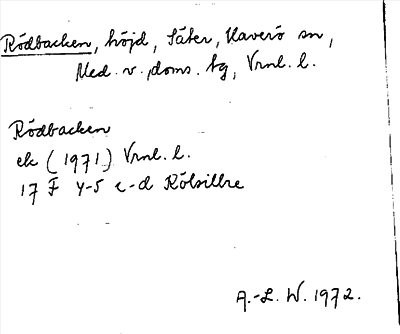 Rödbacken, höjd, Säter, Haverö sn,
Med. v. doms. tg, Vrnl. l.
Rödbacken
ek (1971) Vrnl. l.
17 F 4-5 c-d Kölsillre
A.-L. W. 1972.